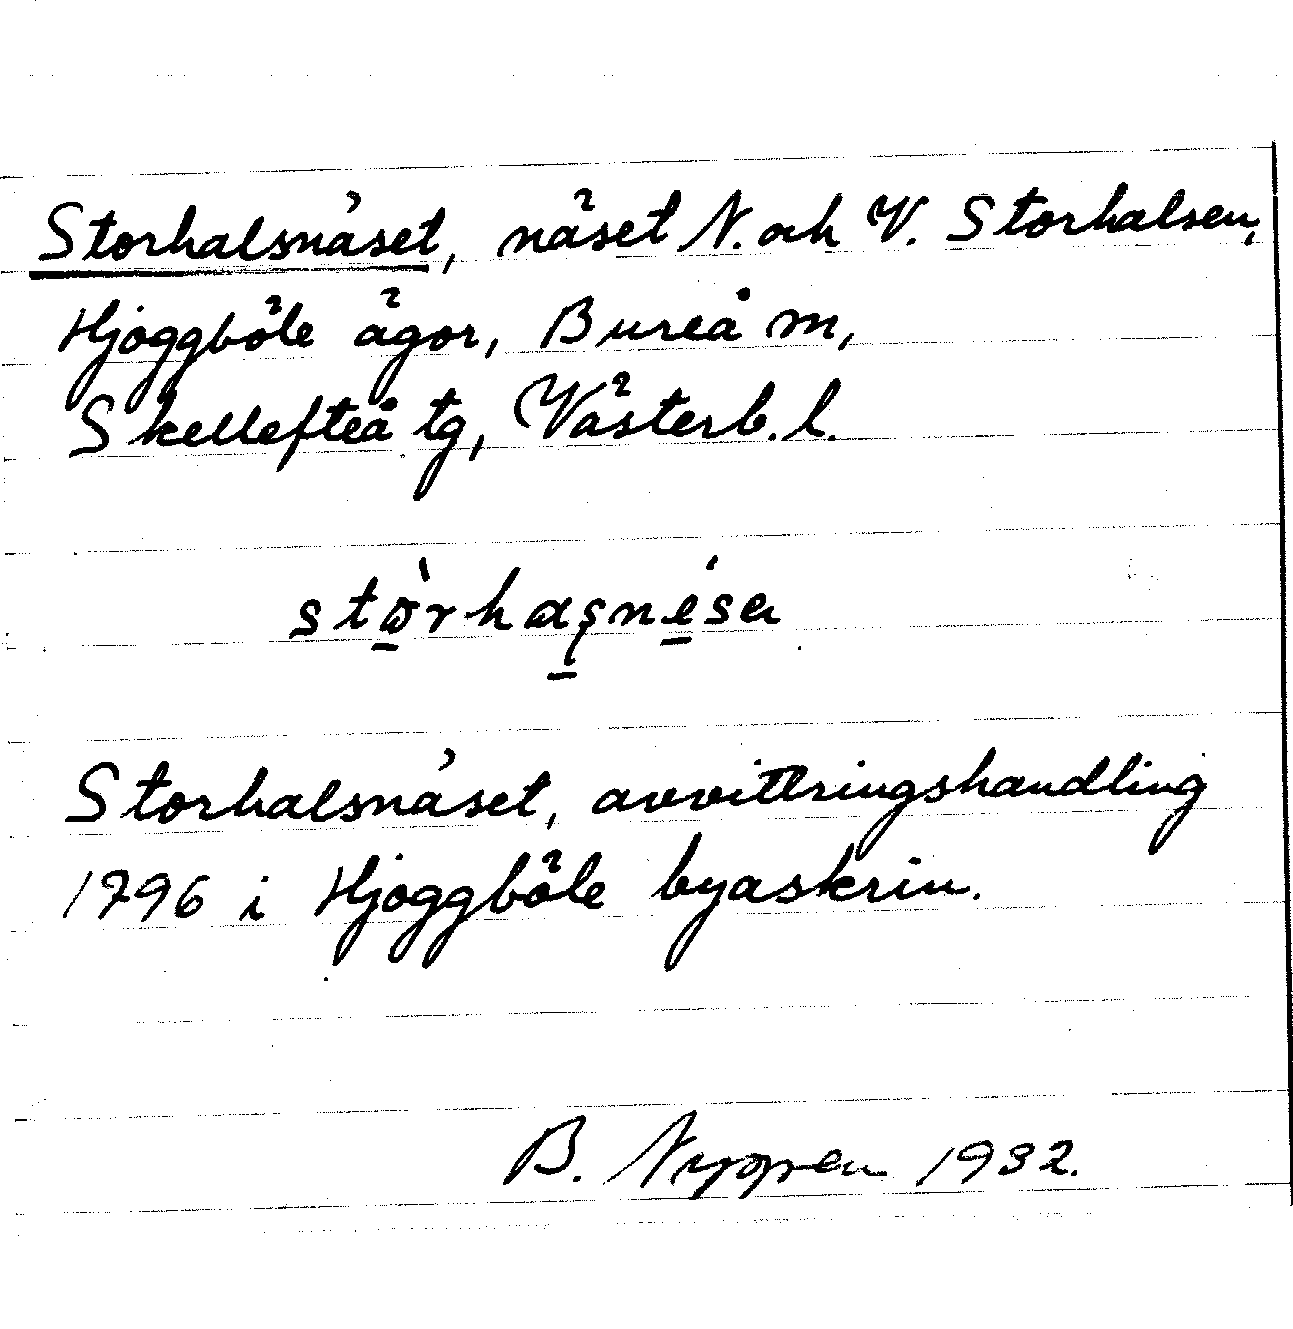 Storhalsnäset, näset N. och V. Storhalsen,
Hjoggböle ägor, Bureå m,
Skellefteå tg, Västerb. l.
Storhalsnäset, avvittringshandling
1796 i Hjoggböle byaskrin.
B. Nyppen 1932.